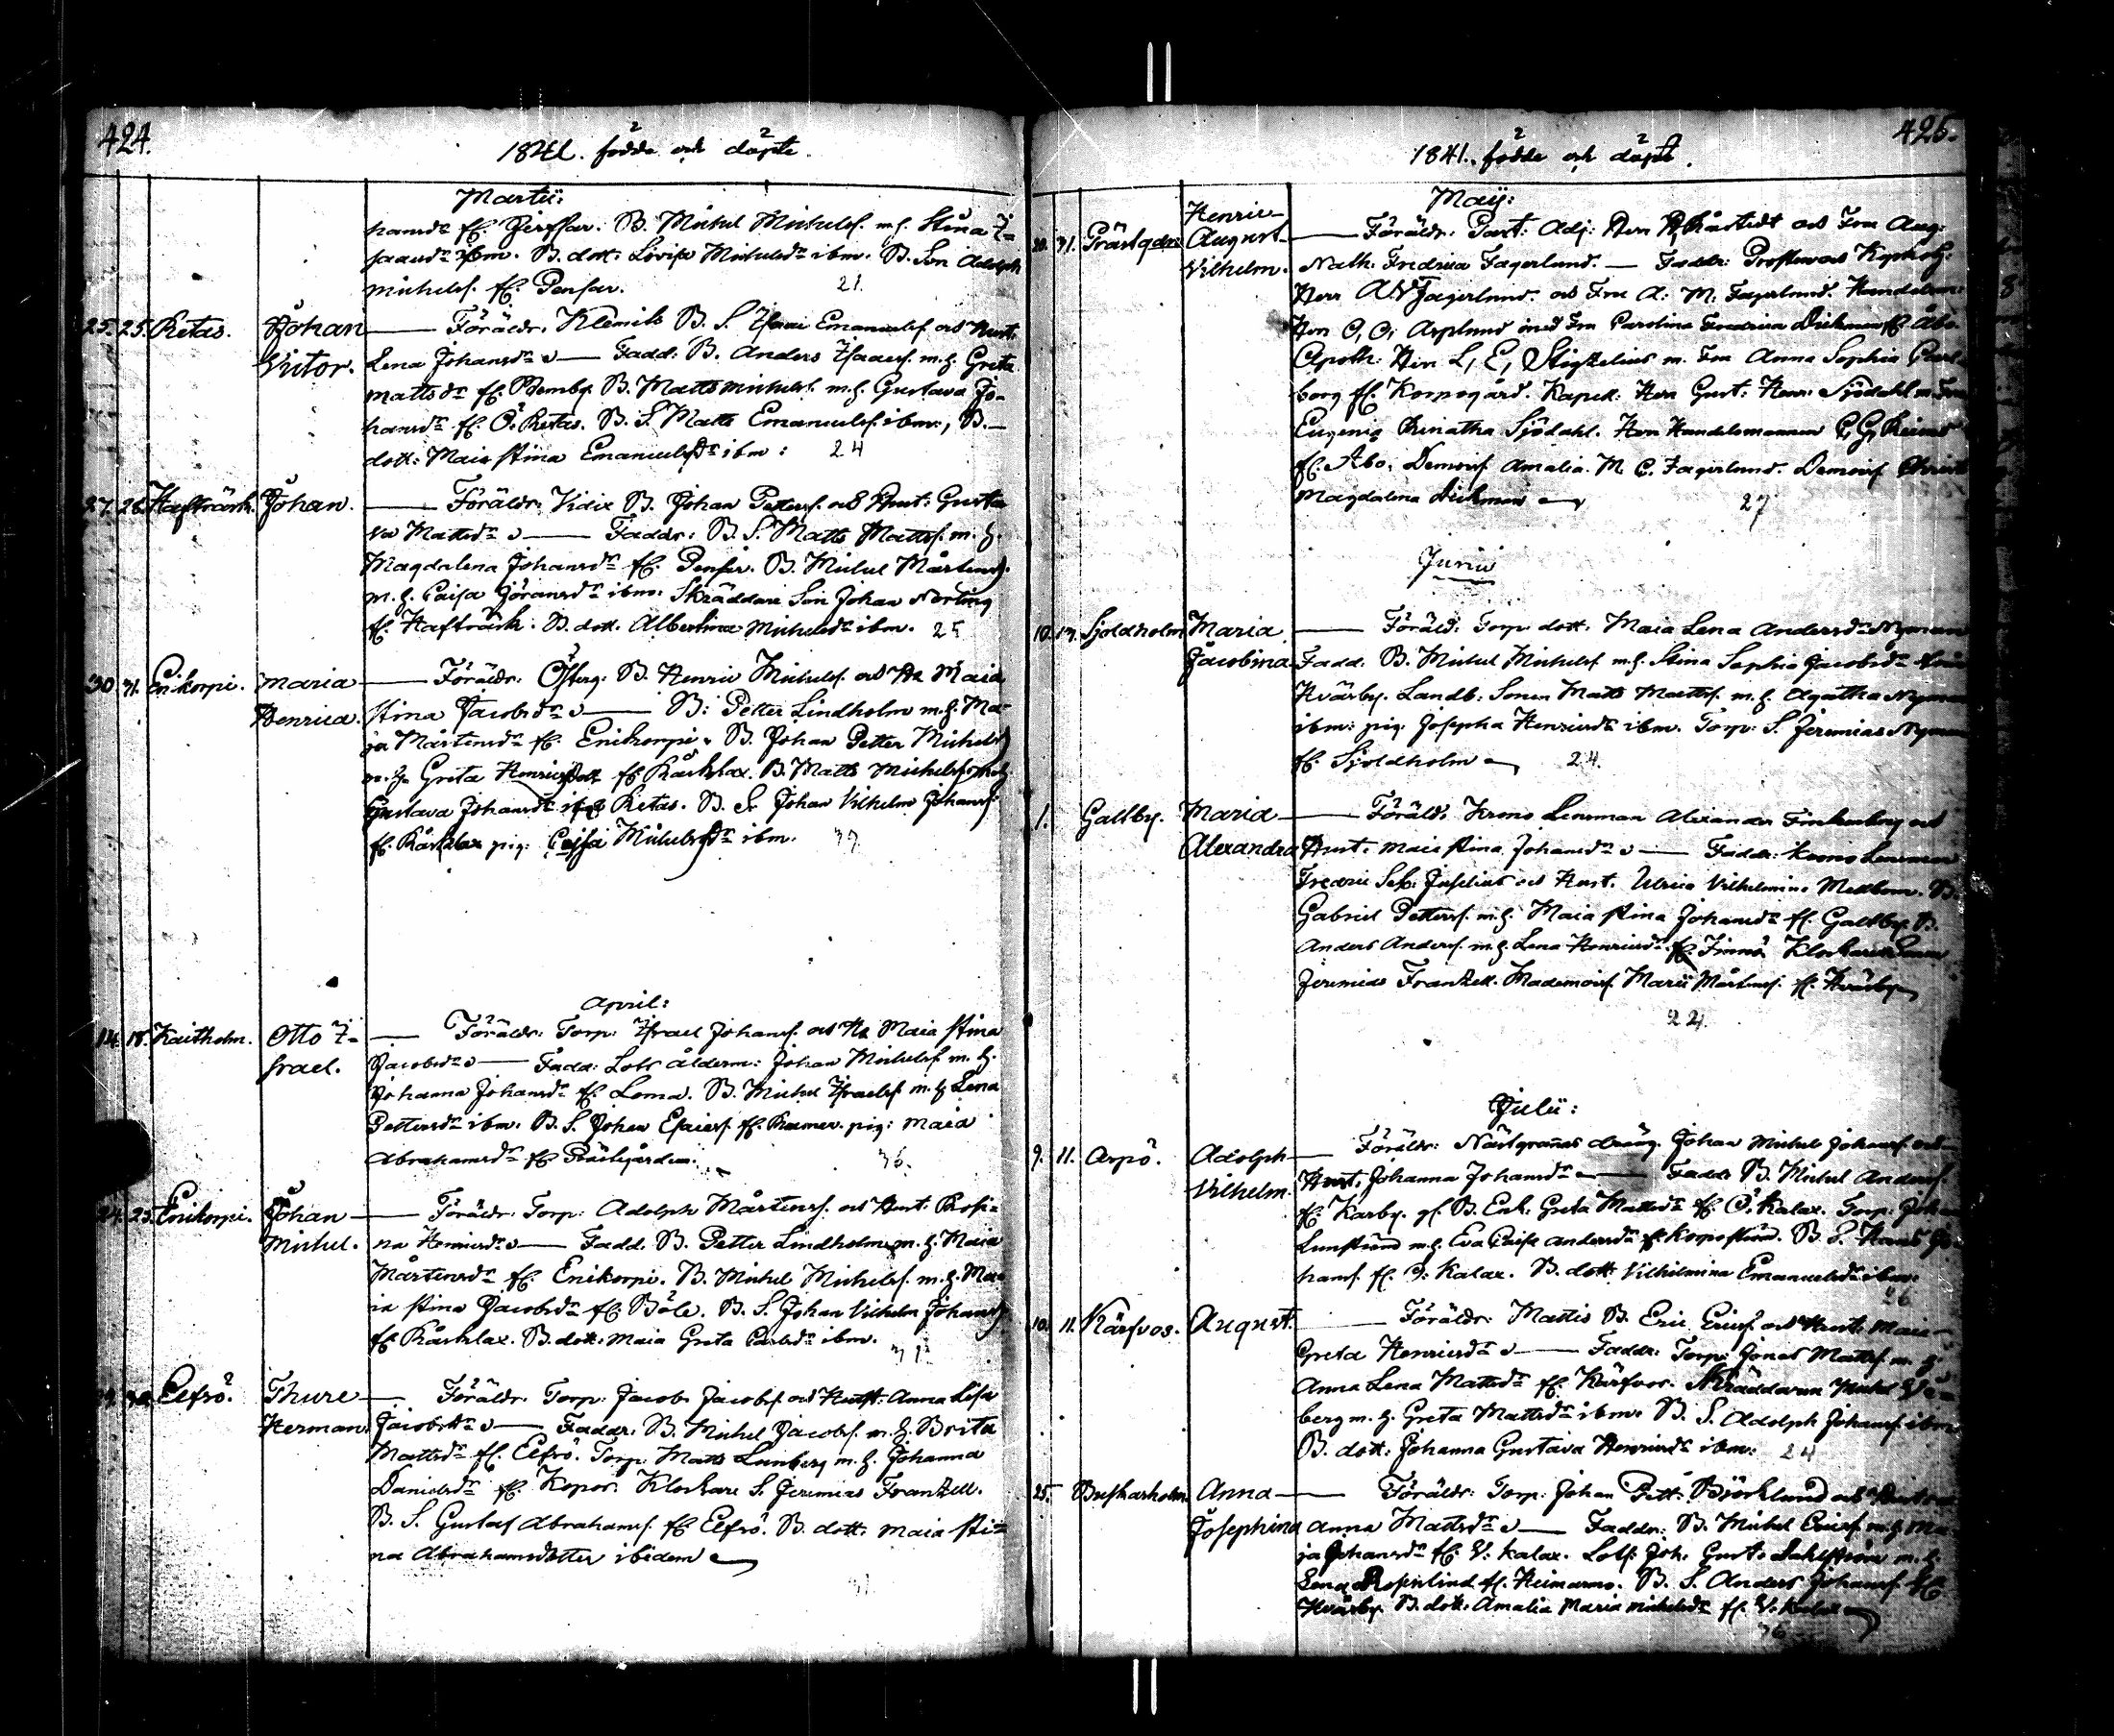 424.
1841. födde och döpte.
Martii:
Michel Michelss. m. h. Stina I-
ibm. B. dott. Lovisa Michelsdr ibm. B. Son Adolph
Michelss. fr. Pensar. 21.
25. 25. Retas. Johan — Föräldr. Klemils B. S. Isaac Emanuelss. och Hust.
Victor. Lena Johansdr — Fadd: B. Anders Isaacss. m. h. Greta
Mattsdr fr. B. Matts Michelss. m. h. Gustava Jo-
hansdr fr. Ö. Retas. B. S. Matts Emanuelss. ibm., B.
dott: Maia Stina Emanuelsdr ibm: 24
27. 28. Hafträsk. Johan. — Föräldr. Vidix B. Johan Petterss. och Hust: Gusta
va Mattsdr — Faddr: B. S. Matts Mattss. m. h.
Magdalena Johansdr fr. Pensar. B. Michel Mårtenss.
m. h. Caisa Göransdr ibm. Skräddare Son Johan Norling
fr. Hafträsk. B. dott. Albertina Michelsdr ibm. 25
30. 31. Enikorpi. Maria — Föräldr. Österg: B. Henric Michelss. och H. Maia
Henrica. Stina Jacobsdr — B: Petter Lindholm m. h. Ma-
ja Mårtensdr fr. Enikorpi. B. Johan Petter Michelss.
m. h. Greta Henricsdott fr. Kårklax. B. Matts Michelss. m. h.
Gustava Johansdr fr. Retas. B. S. Johan Vilhelm Johanss.
fr. Kårklax pig: Caisa Michelsdr ibm. 37.
April:
14. 18. Kaitholm. Otto I- — Föräldr: Torp: Israel Johanss. och H. Maia Stina
srael. Jacobsdr — Fadd: Lots ålderm: Johan Michelss. m. h.
Johanna Johansdr fr. Loma. B. Michel Israelss. m. h. Lena
Pettersdr ibm. B. S. Johan Esaiess. fr. Rumar. pig: Maia
Abrahamsdr fr. Prästgården. 36.
24. 25. Enikorpi. Johan — Föräldr. Torp: Adolph Mårtenss. och Hust. Rosi-
Michel. na Henricsdr — Fadd. B. Petter Lindholm m. h. Maia
Mårtensdr fr. Enikorpi. B. Michel Michelss. m. h. Ma-
ia Stina Jacobsdr fr. Böle. B. S. Johan Vilhelm Johanss.
fr. Kårklax. B. dott: Maia Greta Carlsdr ibm.
Elfsö. Thure — Föräldr. Torp: Jacob Jacobss. och Hust: Anna Lisa
Herman. Jacobsdr — Faddr. B. Michel Jacobss. m. h. Brita
Mattsdr fr. Elfsö. Torp. Matts Lunberg m. h. Johanna
Danielsdr fr. Kopor. Klockare S. Jeremias Frantzell.
B. S. Gustaf Abrahamss. fr. Elfsö. B. dott: Maia Sti-
na Abrahamsdotter ibidem
425.
1841. födde och döpte.
Maij:
31. Prästgården Henric — Föräldr. Past: Adj: Herr och Fru Aug:
August
Vilhelm. Nath. Fredrica Fagerlund. — Faddr: Prosten och Kyrkoh:
Herr Fagerlund. och Fru A: M: Fagerlund. Handelsm:
Herr C, O, Asplund med Fru Carolina Fredrica Dickman fr. Åbo.
Apoth: Herr L, E, Stigzelius m. Fru Anna Sophia
borg fr. Korpogård. Kapell. Herr Gust: Henr: Sjödahl m. Fru
Eugenia Renatha Sjödahl. Herr Handelsmannen
fr. Åbo, Demoisf Amalia M. C. Fagerlund. Demoisf
Magdalena Dickman 27
Junii
10. 17. Sjoldholm Maria — Föräld: Torp dott. Maia Lena Andersdr Nyman
Jacobina Fadd. B. Michel Michelss. m. h. Stina Sophia Jacobsdr
Hvärby. Landb: Sonen Matts Mattss. m. h. Agatha Nyman
ibm: pig: Josepha Henricsdr ibm. Torp: S. Jeremias Nyman
fr. Sjoldholm 24.
1. Galtby. Maria — Föräldr. Krono Lensman Alexander Finkenberg och
Alexandra Hust. Maia Stina Johansdr — Faddr: Krono Lensman
Fredric Seb: Juselius och Hust. Ulrica Vilhelmina Mellbom. B.
Gabriel Petterss. m. h. Maia Stina Johansdr fr. Galtby. B.
Anders Anderss. m. h. Lena Henricsdr fr. Finnö. Klockare Son
Jeremias Frantzell. Mademoisf Marii Mårtenss. fr. Hvärby
22.
Julii:
9. 11. Arpö. Adolph — Föräldr: Nästgranas dräng. Johan Michel Johanss. och
Vilhelm. Hust. Johanna Johansdr — Fadd. B. Michel Anderss.
fr. Karby. gl. B. Enk. Greta Mattsdr fr. Ö. Kalax. Torp. Johan
Lunström m. h. Eva Caisa Andersdr fr. Korpoström. B. S. Hans Jo-
hanss. fr. Ö. Kalax. B. dott Vilhelmina Emanuelsdr ibm:
26
10. 11. Kärfvos. August. — Föräldr: Mattis B. Eric Ericss. och Hust. Maia
Greta Henricsdr — Faddr: Torp: Jonas Mattss. m. h.
Anna Lena Mattsdr fr. Kärfvos. Skräddaren Michel
berg m. h. Greta Mattsdr ibm. B. S. Adolph Johanss. ibm.
B. dott: Johanna Gustava Henricsdr ibm: 24
25. Buskasholm Anna — Föräldr: Torp. Johan Pett: Björklund och Hustr.
Josephina Anna Mattsdr — Faddr: B. Michel Ericss. m. h. Ma-
ja Johansdr fr. V. Kalax. Lots: Joh. Gust. Dahlström m. h.
Lena Rosenlind fr. Heimarmo. B. S. Anders Johanss. fr.
Hvärby. B. dott. Amalia Maria Michelsdr fr. V. Kalax
36